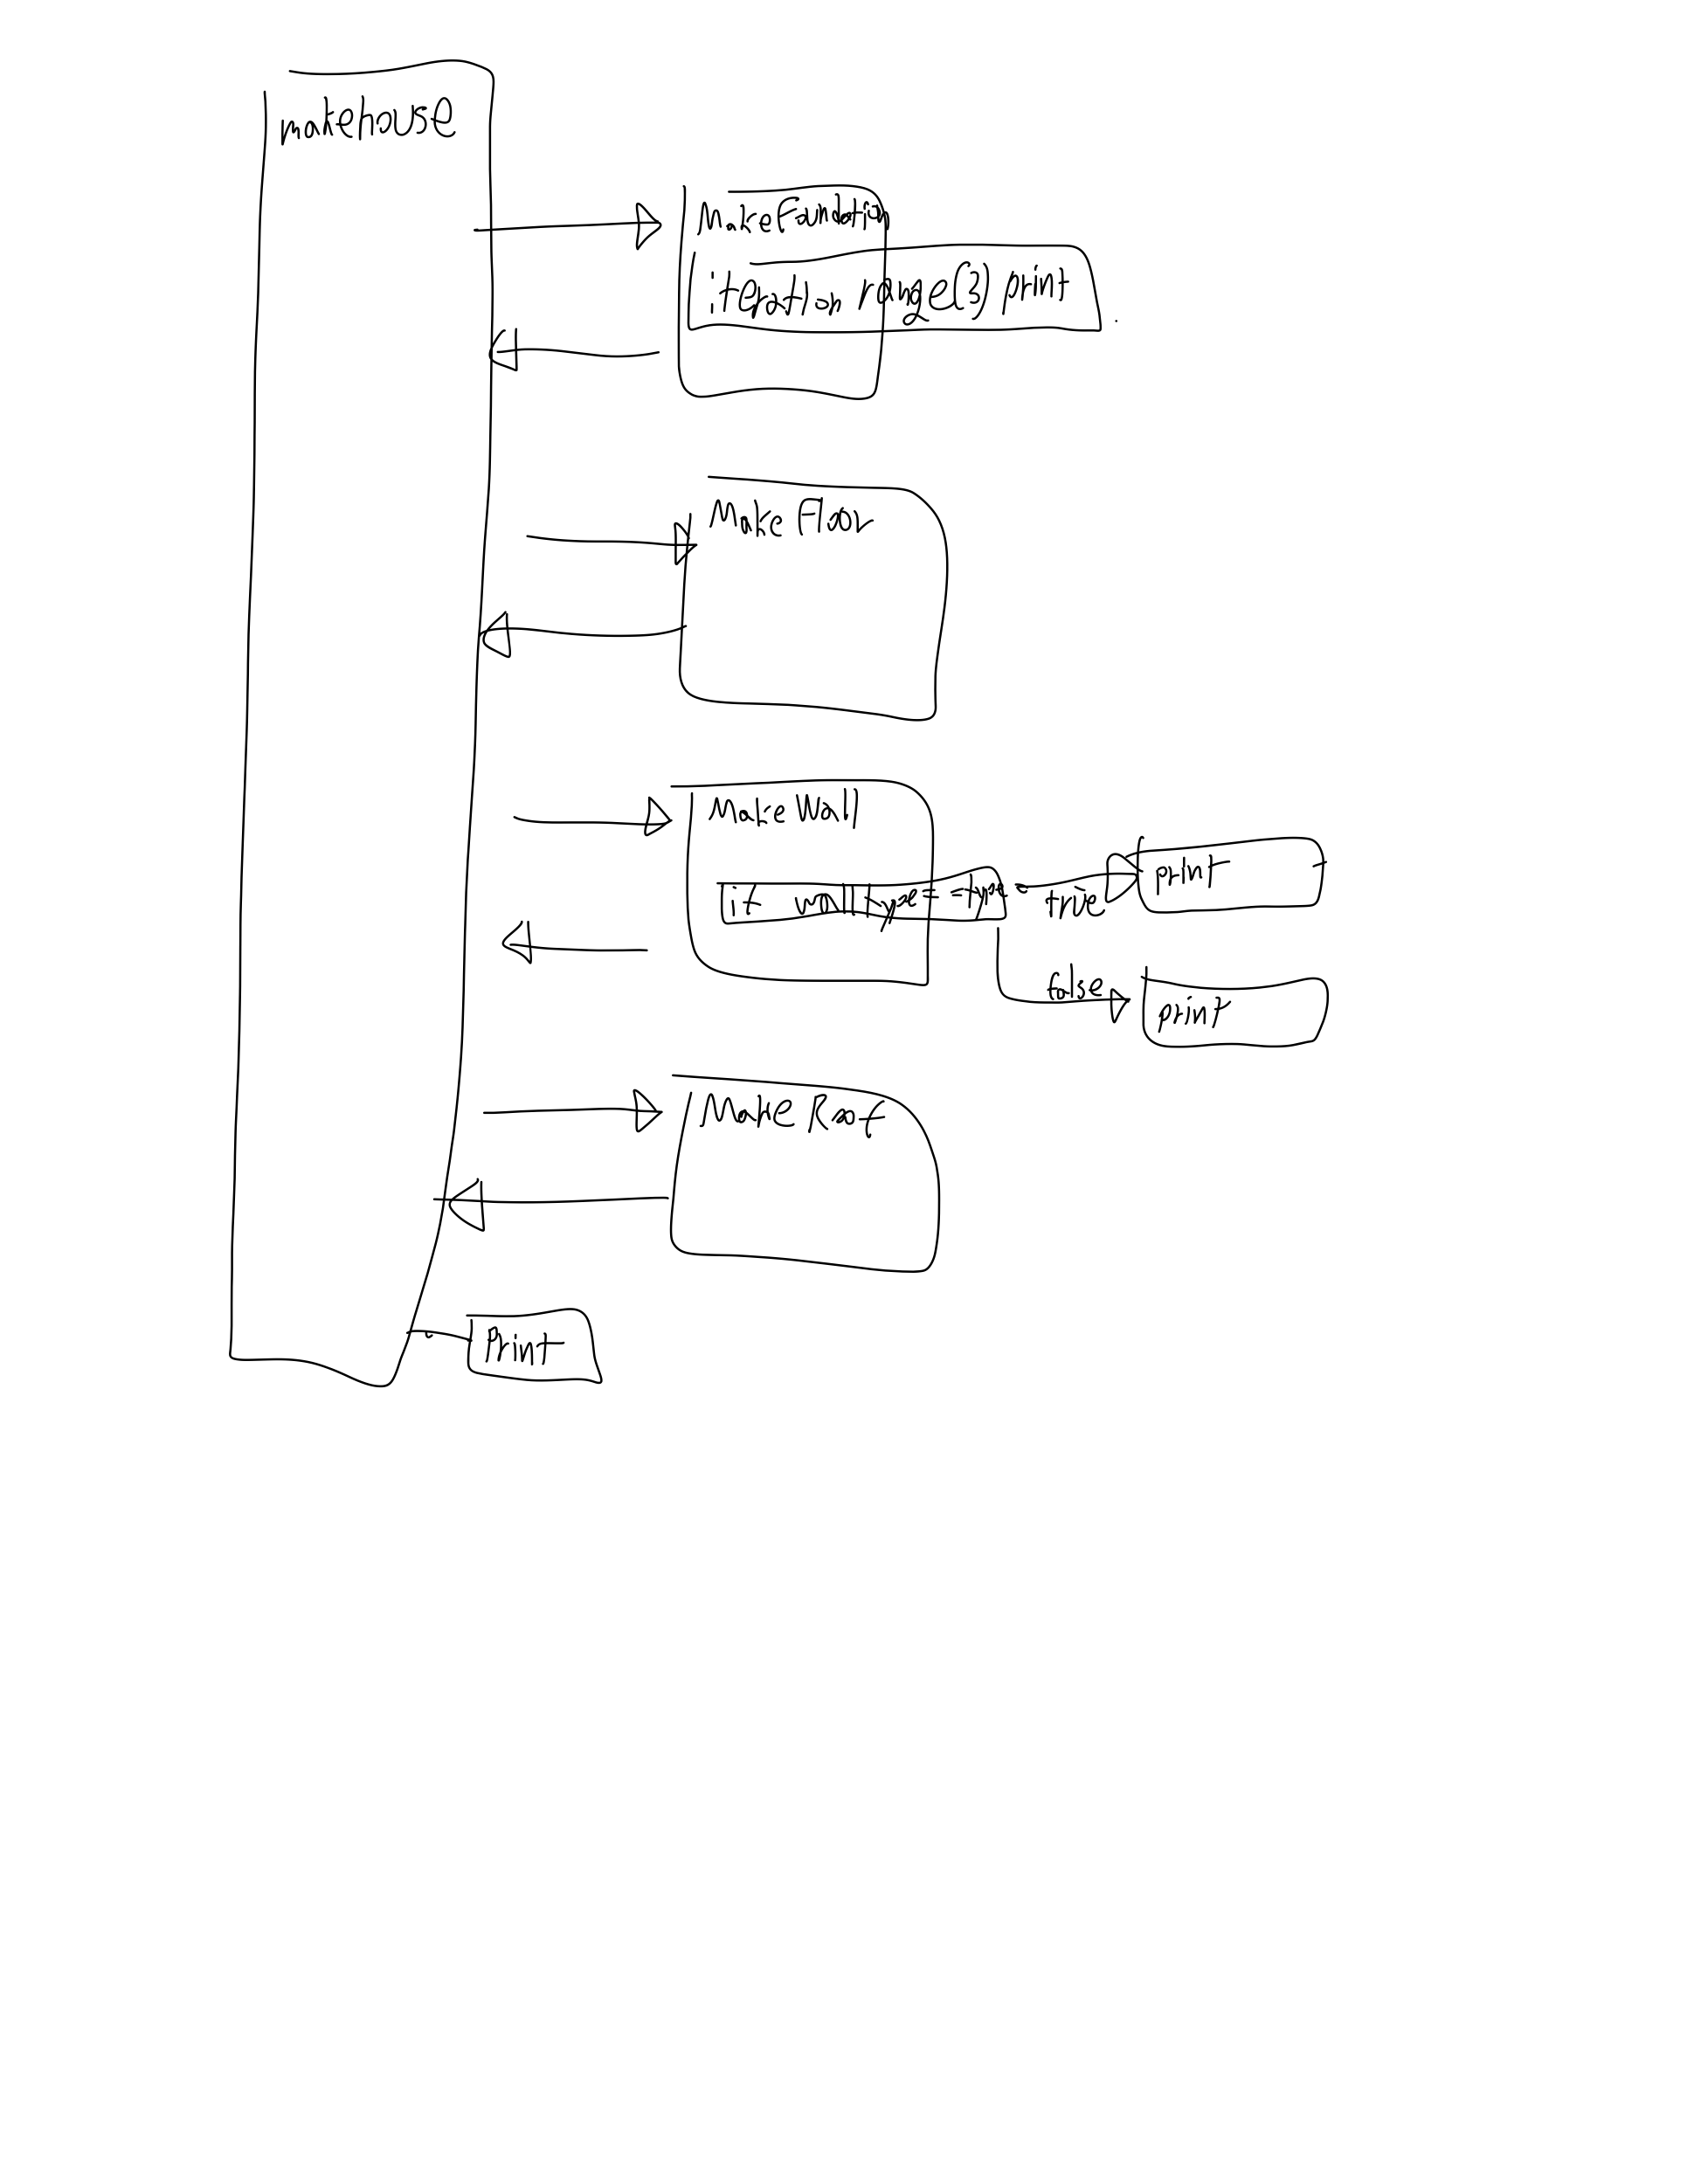 makehouse
MakeFoundation
iteration range(3) print
Make Floor
Make Wall
if walltype==type
true
print
false
print
Make Roof
Print